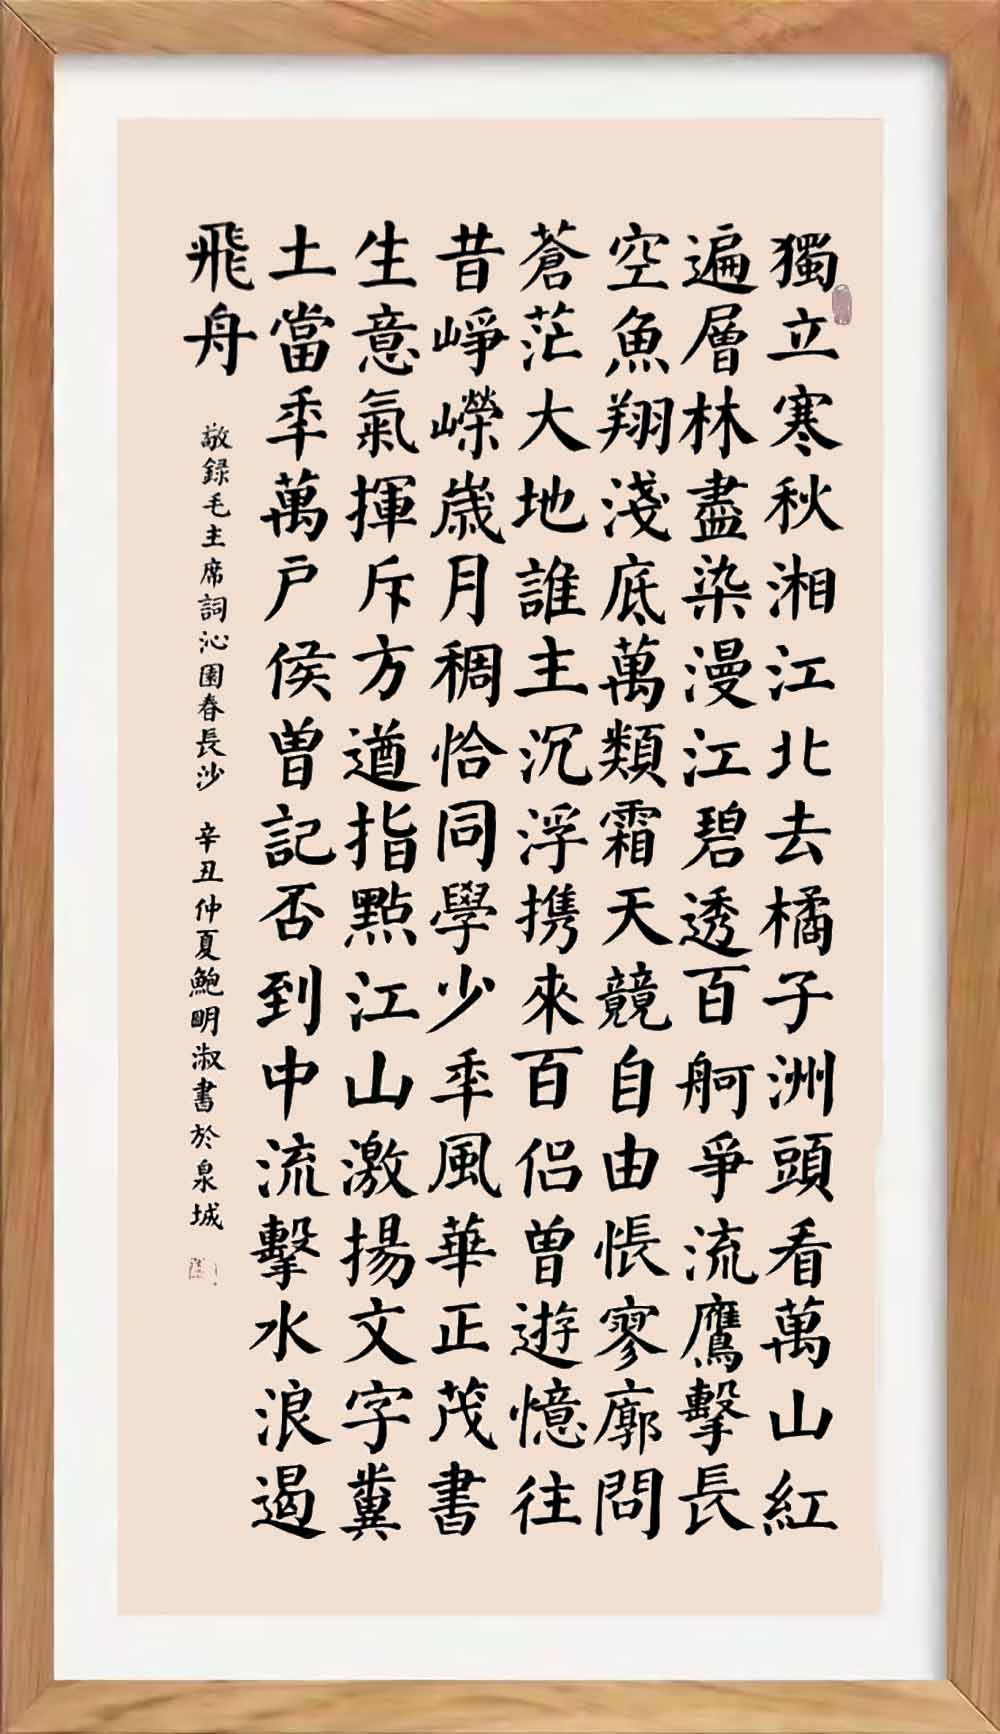 獨立寒秋湘江北去橘子洲頭看萬山紅
遍層林盡染漫江碧透百舸爭流鷹擊長
空魚翔淺底萬類霜天競自由悵寥廓問
蒼茫大地誰主沉浮携來百侣曾遊憶往
昔崢嶸歲月稠恰同學少年風華正茂書
生意氣揮斥方遒指點江山激揚文字糞
土當年萬户侯曾記否到中流擊水浪遏
飛舟
敬録毛主席詞沁園春長沙 辛丑仲夏鮑明淑書於泉城